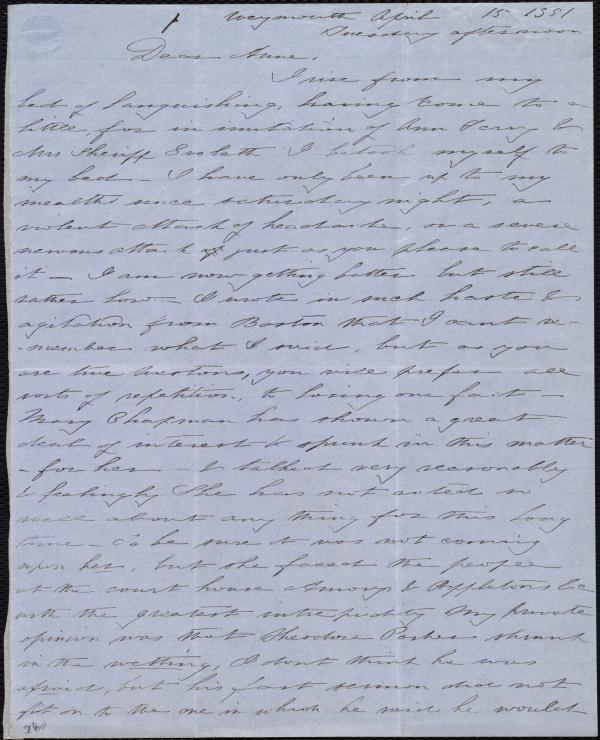 Weymouth April 15 1851
Tuesday afternoon
Dear Anne,
I rise from my
bed of languishing, having come to a
little, for in imitation of Ann Terry &
Mrs Sheriff I betook myself to
my bed - I have only been up to my
meals since saturday night, a
violent attack of headache, or a severe
nervous attack just as you please to call
it - I am now getting better but still
rather low - I wrote in such haste &
agitation from Boston that I cant re-
-member what I said, but as you
are true Westons, you will prefer all
sorts of repetition, to losing one fact -
Mary Chapman has shown a great
deal of interest & spunk in this matter
- for her - & talked very reasonably
& feelingly She has not acted so
well about any thing for this long
time - to be sure it was not coming
upon her, but she faced the people
at the court house Amorys & Appletons &c
with the greatest intrepidity My private
opinion was that Theodore Parker shrunk
in the wetting, I dont think he was
afraid, but his fast sermon did not
fit on to the one in which he said he would
280